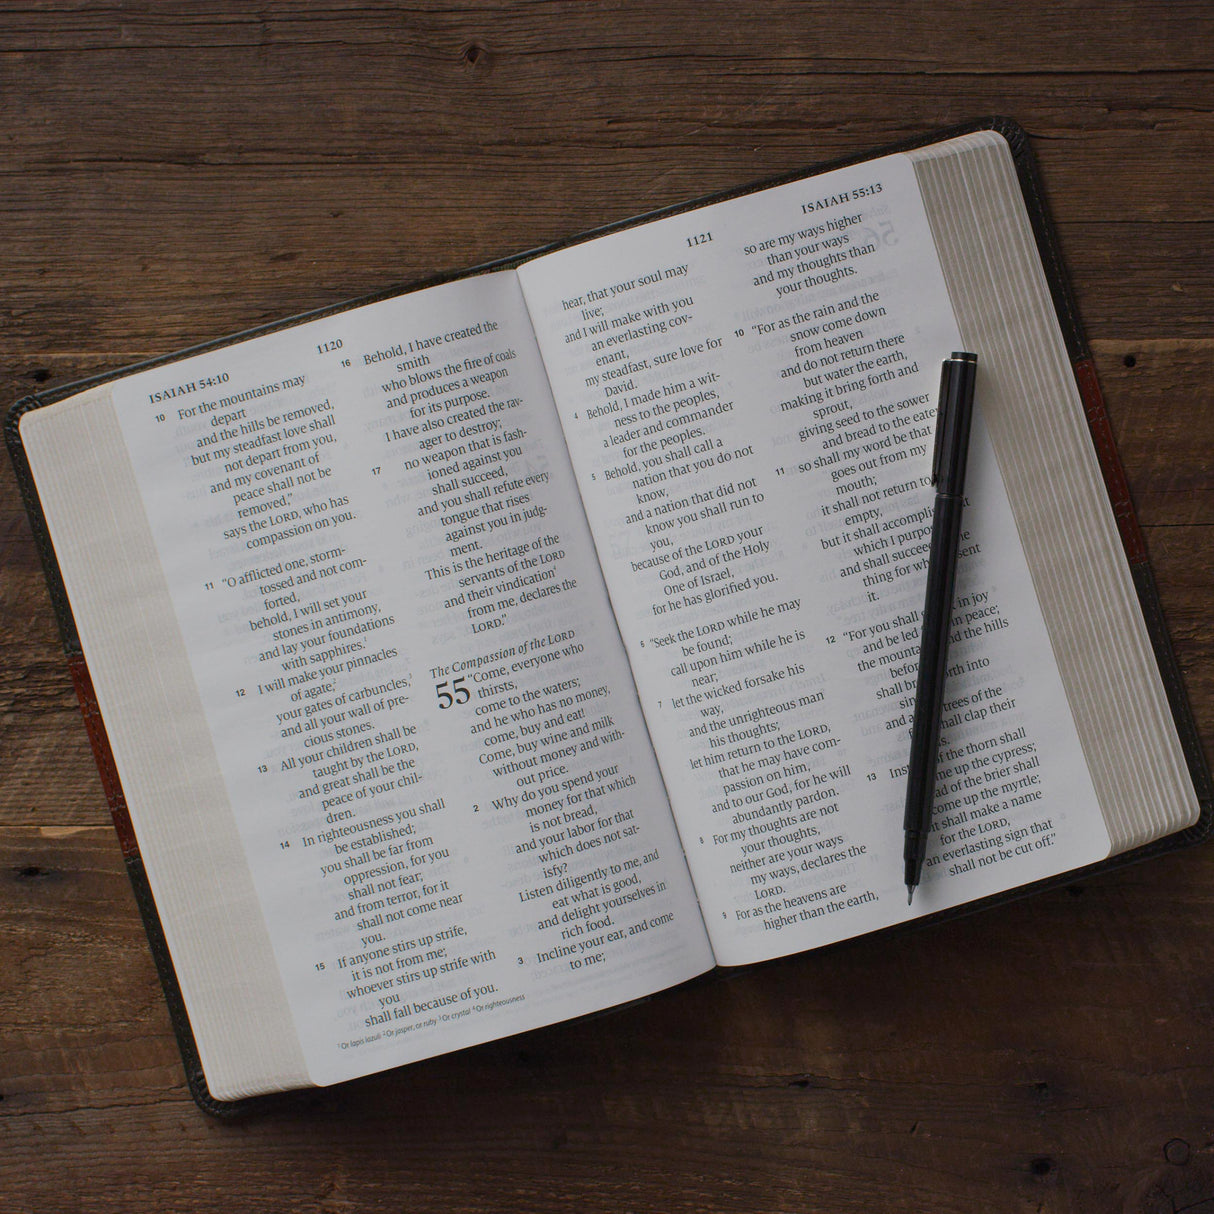 ISAIAH 54:10
1120
10 For the mountains may
depart
and the hills be removed,
but my steadfast love shall
not depart from you,
and my covenant of
peace shall not be
removed,”
says the LORD, who has
compassion on you.
11 “O afflicted one, storm-
tossed and not com-
forted,
behold, I will set your
stones in antimony,
and lay your foundations
with sapphires.1
12 I will make your pinnacles
of agate,2
your gates of carbuncles,3
and all your wall of pre-
cious stones.
13 All your children shall be
taught by the LORD,
and great shall be the
peace of your chil-
dren.
14 In righteousness you shall
be established;
you shall be far from
oppression, for you
shall not fear;
and from terror, for it
shall not come near
you.
15 If anyone stirs up strife,
it is not from me;
whoever stirs up strife with
you
shall fall because of you.
16 Behold, I have created the
smith
who blows the fire of coals
and produces a weapon
for its purpose.
I have also created the rav-
ager to destroy;
17 no weapon that is fash-
ioned against you
shall succeed,
and you shall refute every
tongue that rises
against you in judg-
ment.
This is the heritage of the
servants of the LORD
and their vindication4
from me, declares the
LORD.”
The Compassion of the LORD
55 “Come, everyone who
thirsts,
come to the waters;
and he who has no money,
come, buy and eat!
Come, buy wine and milk
without money and with-
out price.
2 Why do you spend your
money for that which
is not bread,
and your labor for that
which does not sat-
isfy?
Listen diligently to me, and
eat what is good,
and delight yourselves in
rich food.
3 Incline your ear, and come
to me;
1 Or lapis lazuli 2 Or jasper, or ruby 3 Or crystal 4 Or righteousness
1121
ISAIAH 55:13
hear, that your soul may
live;
and I will make with you
an everlasting cov-
enant,
my steadfast, sure love for
David.
4 Behold, I made him a wit-
ness to the peoples,
a leader and commander
for the peoples.
5 Behold, you shall call a
nation that you do not
know,
and a nation that did not
know you shall run to
you,
because of the LORD your
God, and of the Holy
One of Israel,
for he has glorified you.
6 “Seek the LORD while he may
be found;
call upon him while he is
near;
7 let the wicked forsake his
way,
and the unrighteous man
his thoughts;
let him return to the LORD,
that he may have com-
passion on him,
and to our God, for he will
abundantly pardon.
8 For my thoughts are not
your thoughts,
neither are your ways
my ways, declares the
LORD.
9 For as the heavens are
higher than the earth,
so are my ways higher
than your ways
and my thoughts than
your thoughts.
10 “For as the rain and the
snow come down
from heaven
and do not return there
but water the earth,
making it bring forth and
sprout,
giving seed to the sower
and bread to the eater,
11 so shall my word be that
goes out from my
mouth;
it shall not return to
empty,
but it shall accomplish
which I purpose,
and shall succeed
thing for
it.
12 “For you shall in joy
and be led in peace;
the and the hills
forth into
shall
and trees of the
shall clap their
13 of the thorn shall
up the cypress;
of the brier shall
come up the myrtle;
it shall make a name
for the LORD,
an everlasting sign that
shall not be cut off.”